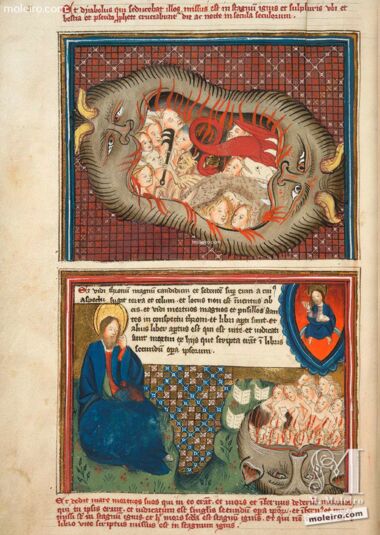 moleiro.com
Et diabolus qui seducebat illos, missus est in stagnum ignis et sulphuris ubi et
bestia et pseudo prophete cruciabuntur die ac nocte in secula seculorum.
moleiro.com
Et vidi thronum magnum candidum et sedentem sup eum a cuius
aspectu fugit terra et celum et locus non est inventus ab
eis et vidi mortuos magnos et pusillos stan
tes in conspectu throni et libri apti sunt et
alius liber aptus est qui est vite et iudicati
sunt mortui ex hijs que scripta erant in libris
secundum opa ipsorum.
Et dedit mare mortuos suos qui in eo erant et mors et
qui in ipsis erant et iudicatum est de singulis secundum opa
est in stagnum ignis et mors scda est stagnum ignis et qui
libro vite scriptus missus est in stagnum ignis.
M
moleiro.com